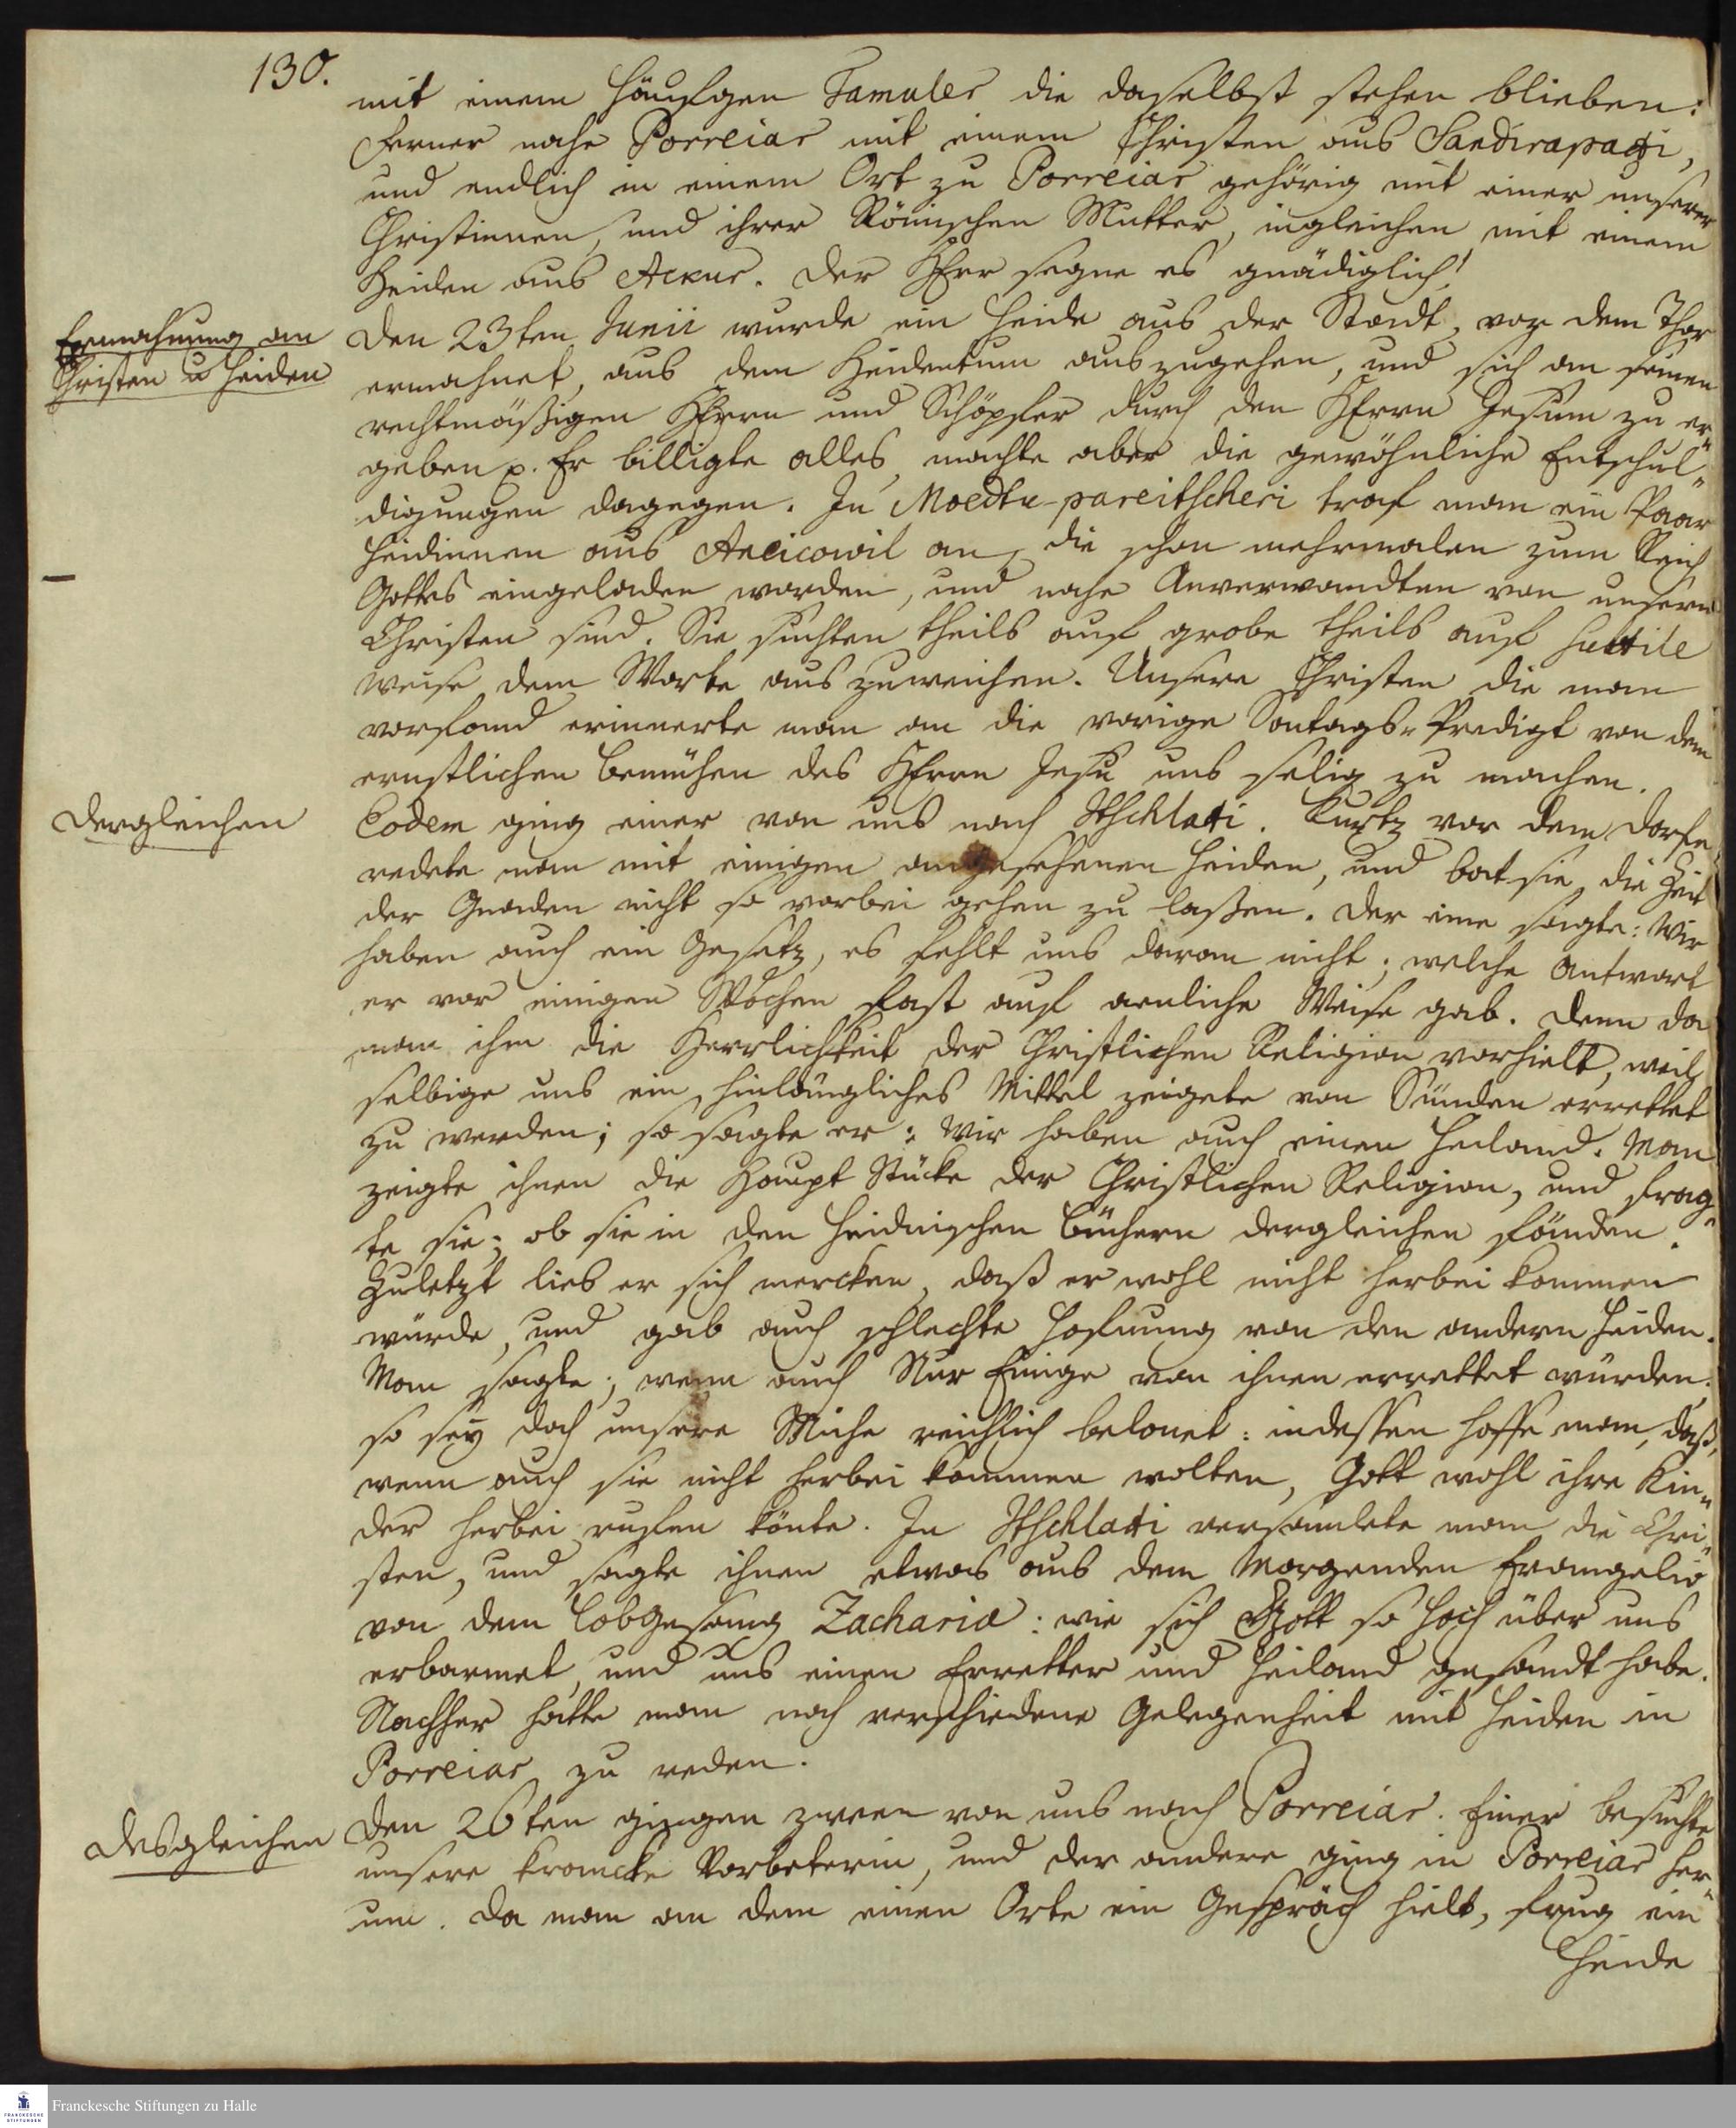 130.
mit einem Häufgen Tamuler die daselbst stehen blieben:
Ferner nahe Porreiar mit einem Christen aus Sandirapaddi,
und endlich in einem Ort zu Porreiar gehörig mit einer unserer
Christinnen, und ihrer Römischen Mutter, ingleichen mit einem
Heiden aus Ackur. Der HErr segne es gnädiglich!
Ermahnung an
Christen u Heiden
Den 23ten Junii wurde ein Heide aus der Stadt, vor dem Thor
ermahnet, aus dem Heidentum auszugehen, und sich an seinen
rechtmäßigen HErrn und Schöpfer durch den HErrn Jesum zu er"
geben p. Er billigte alles, machte aber die gewöhnliche Entschul"
digungen dagegen. In Moedtu-pareitscheri traf man ein Paar
Heidinnen aus Aneicowil an, die schon mehrmalen zum Reich
Gottes eingeladen worden, und nahe Anverwandten von unsern
Christen sind. Sie suchten theils auf grobe theils auf subtile
Weise dem Worte auszuweichen. Unsere Christen die man
vorfand erinnerte man an die vorige Sontags-Predigt von dem
ernstlichen Bemühen des HErrn Jesu uns selig zu machen.
Dergleichen
Eodem ging einer von uns nach Itschladi. Kurtz vor dem Dorfe
redete man mit einigen angesehenen Heiden, und bat sie, die Zeit
der Gnaden nicht so vorbei gehen zu laßen. Der eine sagte: Wir
haben auch ein Gesetz, es fehlt uns daran nicht; welche Antwort
er vor einigen Wochen fast auf aenliche Weise gab. Denn da
man ihm die Herrlichkeit der Christlichen Religion vorhielt, weil
selbige uns ein hinlängliches Mittel zeigete von Sünden errettet
zu werden; so sagte er: Wir haben auch einen Heiland. Man
zeigte ihnen die Haupt Stücke der Christlichen Religion, und frag"
te sie: ob sie in den Heidnischen Büchern dergleichen fänden.
Zuletzt lies er sich mercken, daß er wohl nicht herbei kommen
würde, und gab auch schlechte Hofnung von den andern Heiden.
Man sagte; wenn auch Nur Einige von ihnen errettet würden:
so sey doch unsere Mühe reichlich belonet: indessen hoffe man, daß,
wenn auch sie nicht herbei kommen wolten, Gott wohl ihre Kin"
der herbei ruffen könte. In Itschladi versamlete man die Chri"
sten, und sagte ihnen etwas aus dem Morgenden Evangelio
von dem Lobgesang Zachariä: wie sich Gott so hoch über uns
erbarmet, und uns einen Erretter und Heiland gesandt habe.
Nachher hatte man noch verschiedene Gelegenheit mit Heiden in
Porreiar zu reden.
Desgleichen
Den 26ten gingen zween von uns nach Porreiar. Einer besuchte
unsere krancke Vorbeterin, und der andere ging in Porreiar her"
um. Da man an dem einen Orte ein Gespräch hielt, frug ein
Heide
Franckesche Stiftungen zu Halle